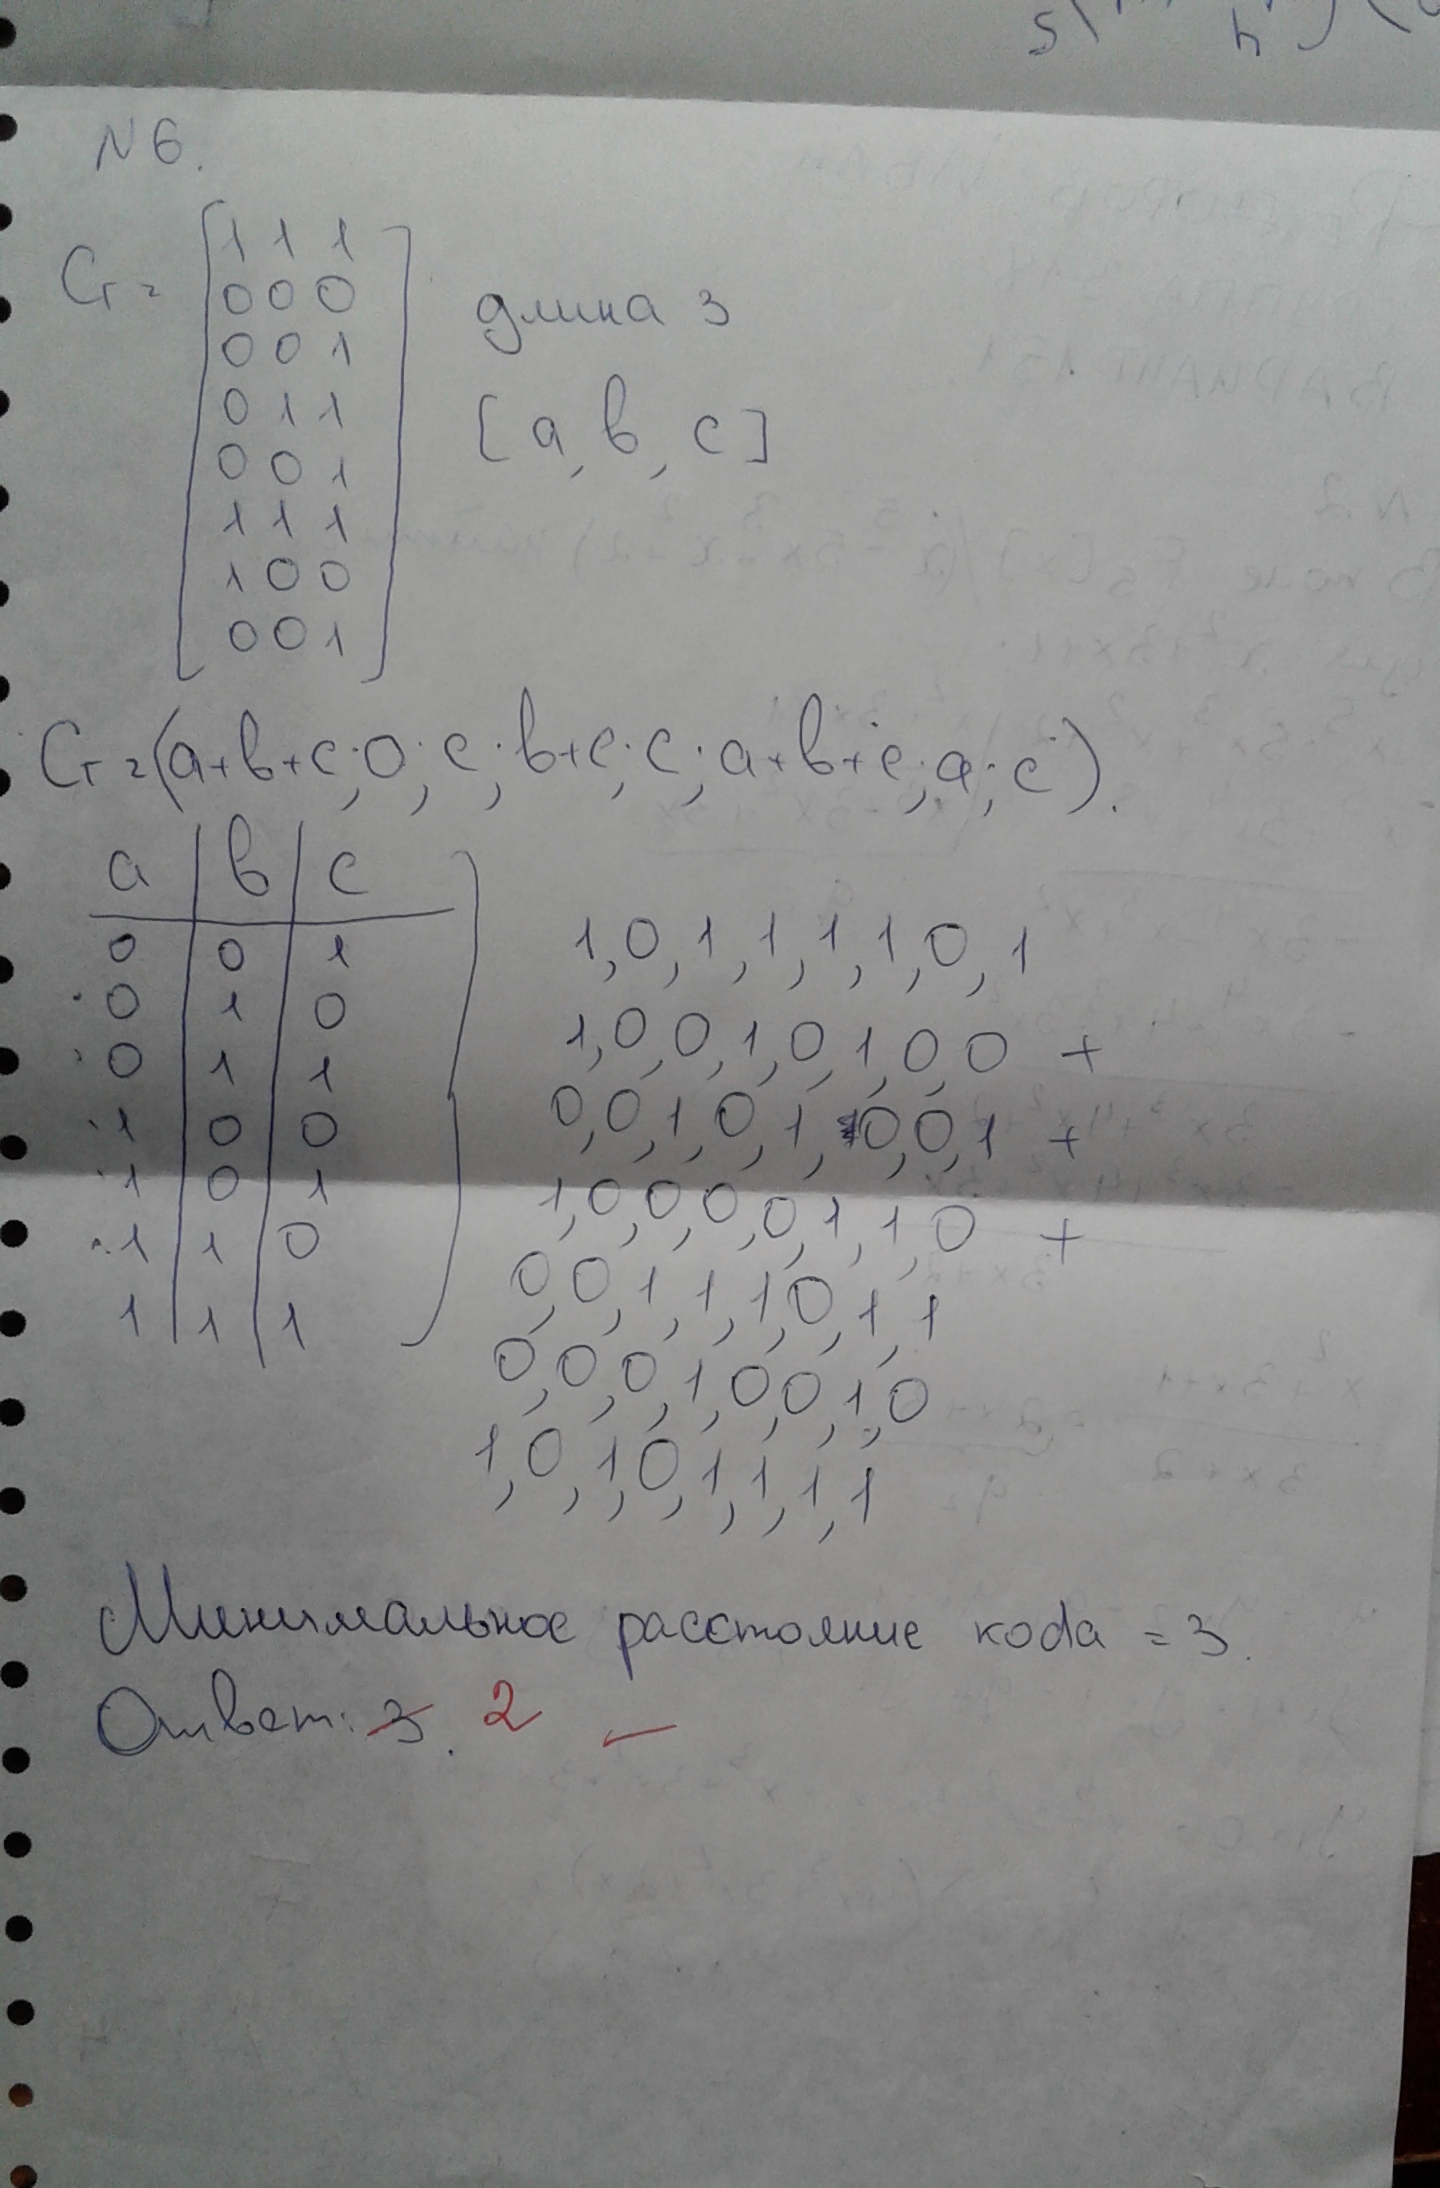 N 6.
G = [1 1 1
0 0 0
0 0 1
0 1 1
0 0 1
1 1 1
1 0 0
0 0 1]
длина 3
[a, в, c]
G = (a+в+c; 0; c; в+c; c; a+в+c; a; c).
a | в | c
0 | 0 | 1
0 | 1 | 0
0 | 1 | 1
1 | 0 | 0
1 | 0 | 1
1 | 1 | 0
1 | 1 | 1
1, 0, 1, 1, 1, 1, 0, 1
1, 0, 0, 1, 0, 1, 0, 0 +
0, 0, 1, 0, 1, 0, 0, 1 +
1, 0, 0, 0, 0, 1, 1, 0 +
0, 0, 1, 1, 1, 0, 1, 1
0, 0, 0, 1, 0, 0, 1, 0
1, 0, 1, 0, 1, 1, 1, 1
Минимальное расстояние кода = 3.
Ответ: 3. 2 –